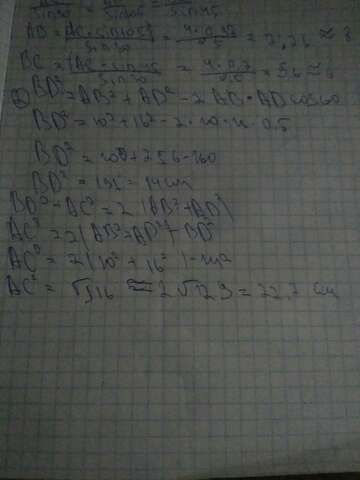 sin30 sin105 sin45
AB = AC · sin105 / sin30 = 4 · 0,97 / 0,5 = 7,76 ≈ 8
BC = AC · sin45 / sin30 = 4 · 0,7 / 0,5 = 5,6 ≈ 6
② BD² = AB² + AD² - 2 AB · AD cos60
BD² = 10² + 16² - 2 · 10 · 16 · 0.5
BD² = 100 + 256 - 160
BD² = 196 = 14 cm
BD² + AC² = 2 (AB² + AD²)
AC² = 2 (AB² + AD²) - BD²
AC² = 2 (10² + 16²) - 14²
AC² = √516 ≈ 2√129 = 22,7 cm